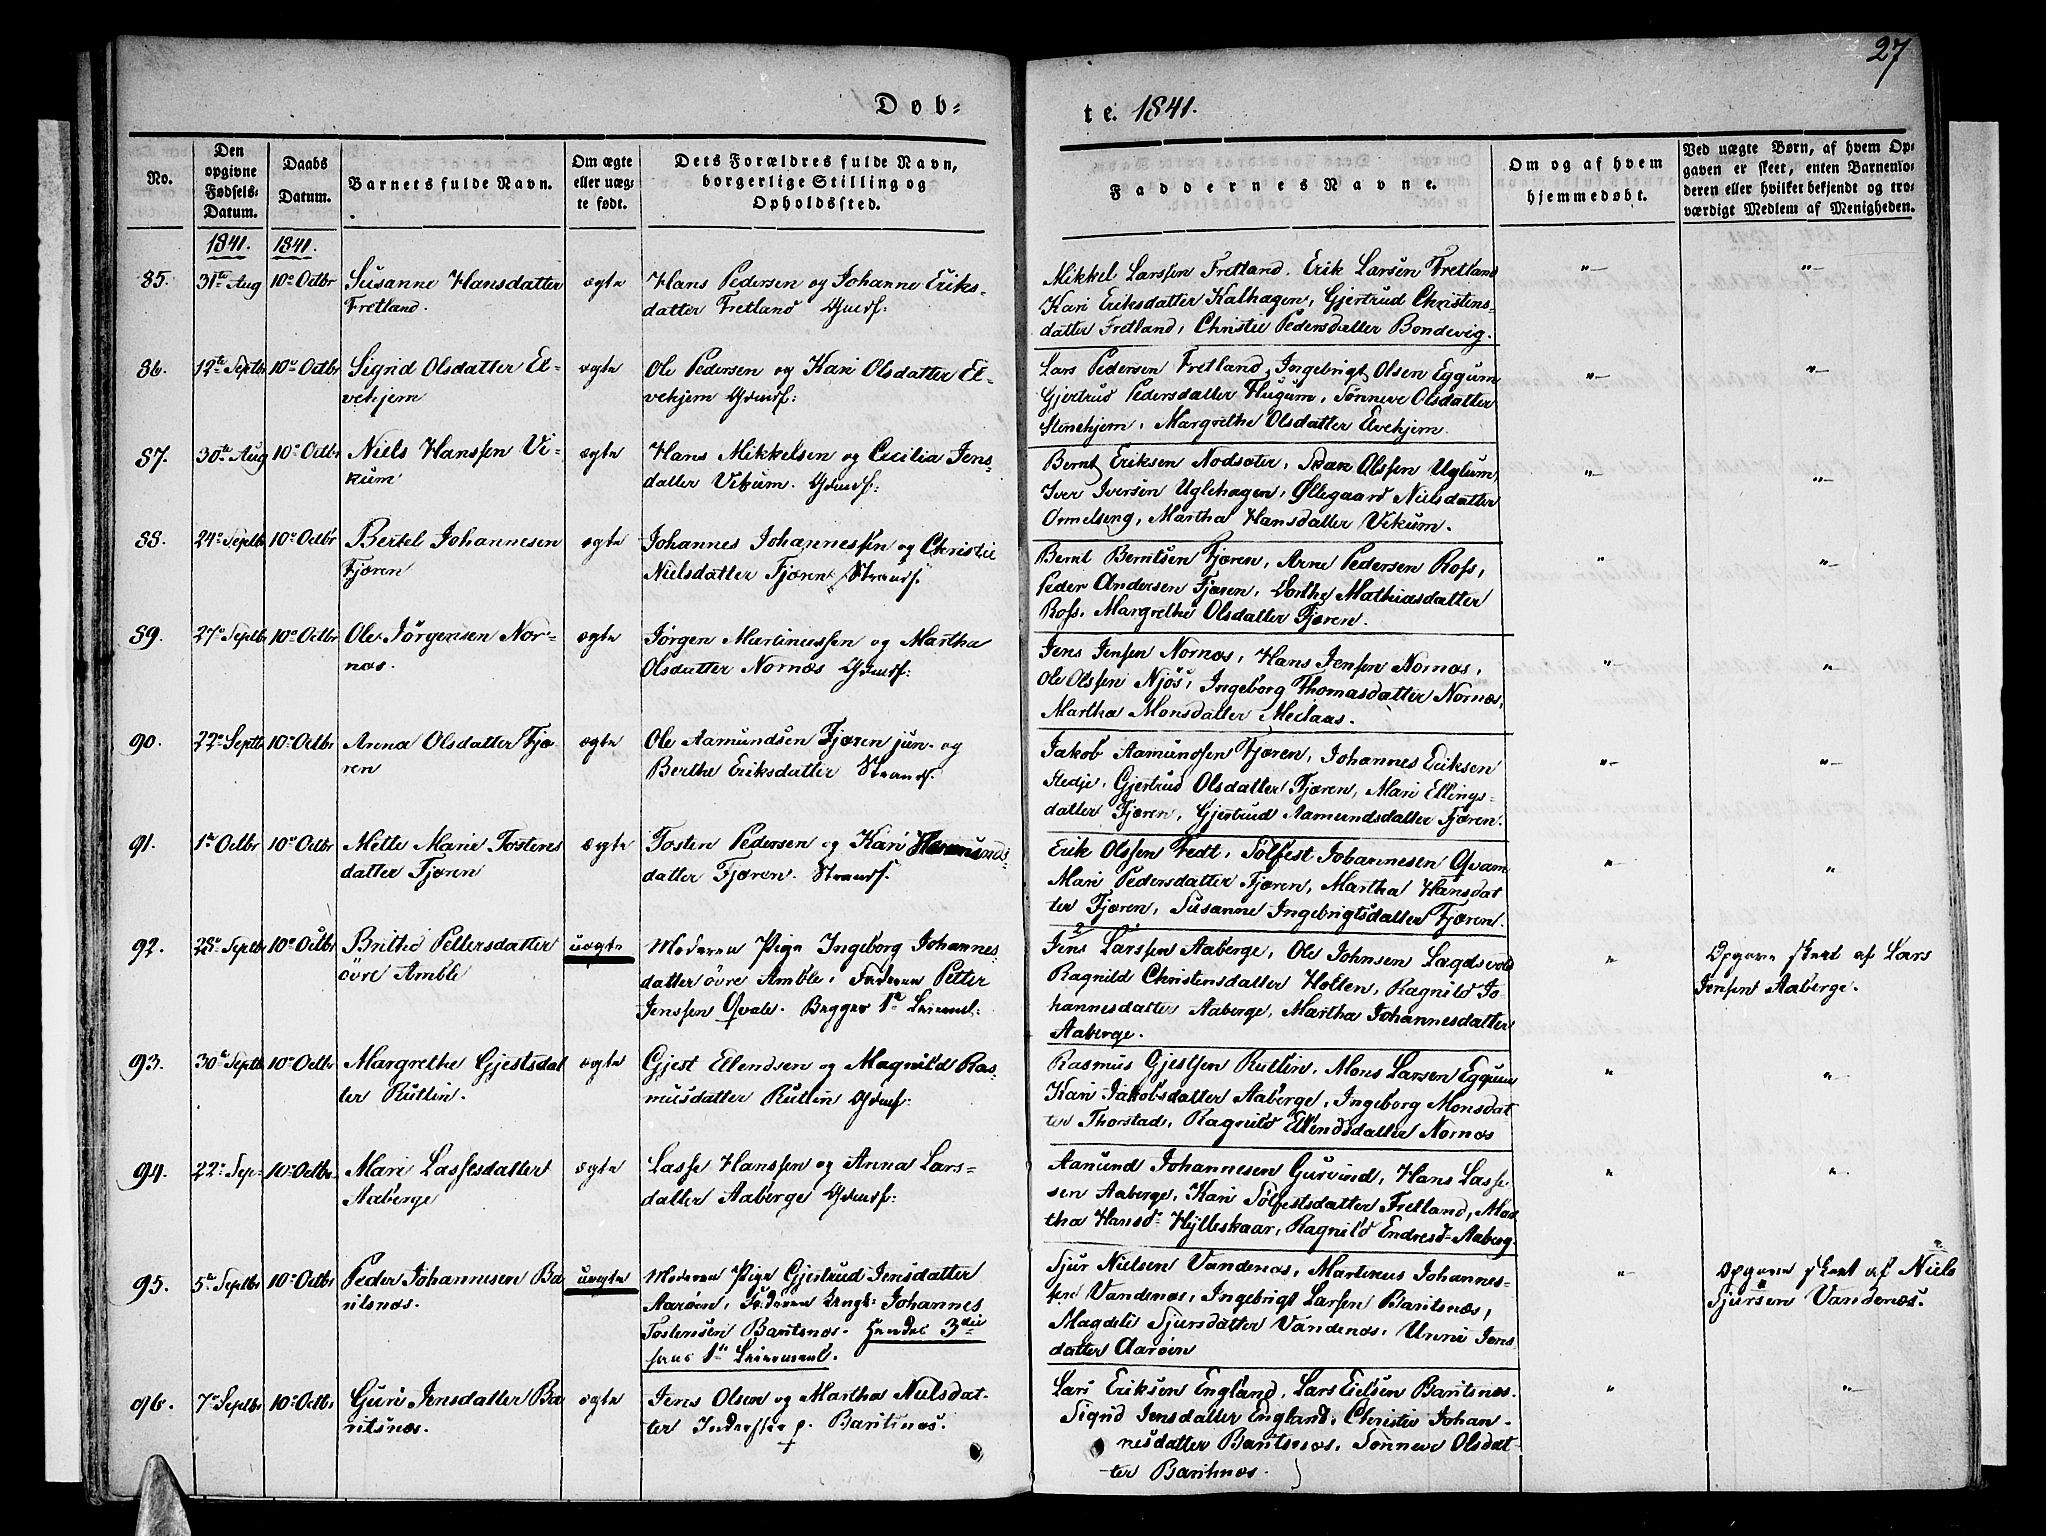 27
Døb-
te. 1841.
No.
Den
opgivne
Fødsels-
Datum.
Daabs
Datum.
Barnets fulde Navn.
Om ægte
eller uæg-
te født.
Dets Forældres fulde Navn,
borgerlige Stilling og
Opholdssted.
Faddernes Navne.
Om og af hvem
hjemmedøbt.
Ved uægte Børn, af hvem Op-
gaven er skeet, enten Barnemo-
deren eller hvilket bekjendt og tro-
værdigt Medlem af Menigheden.
1841. 1841.
85. 31te Aug 10de Octbr Susanne Hansdatter
Fretland.
ægte
Hans Pedersen og Johanne Eriks-
datter Fretland Gdmf:
Mikkel Larssen Fretland. Erik Larsen Fretland
Kari Eriksdatter Kalhagen, Gjertrud Christens-
datter Fretland, Christie Pedersdatter Bondevig.
"— "—
86. 12te Septb 10de Octbr Sigrid Olsdatter El-
vehjem
ægte
Ole Pedersen og Kari Olsdatter El-
vehjem Gdmf:
Lars Pedersen Fretland, Ingebrigt Olsen Eggum
Gjertrud Pedersdatter Hugum, Sønneve Olsdatter
Stenehjem, Margrethe Olsdatter Elvehjem.
"— "—
87. 30te Aug 10de Octbr Niels Hanssen Vi-
kum
ægte
Hans Mikkelsen og Cecilia Jens-
datter Vikum. Gdmf:
Bernt Eriksen Nodsæter, Isak Olssen Uglum,
Iver Iversen Uglehagen, Øllegaard Nielsdatter
Ormelseng, Martha Hansdatter Vikum.
"— "—
88. 24de Septbr 10de Octbr Bertel Johannesen
Fjæren
ægte
Johannes Johannessen og Christie
Nielsdatter Fjæren Strands.
Bernt Berntsen Fjæren, Arne Pedersen Ross,
Peder Andersen Fjæren, Dorthe Mathiasdatter
Ross, Margrethe Olsdatter Fjæren.
" "—
89. 27de Septbr 10de Octbr Ole Jörgensen Nor-
næs.
ægte
Jörgen Martinussen og Martha
Olsdatter Nornæs Gdmf:
Jens Jensen Nornæs, Hans Jensen Nornæs,
Ole Olssen Njøs, Ingeborg Thomasdatter Nornæs,
Martha Monsdatter Meelaas.
"— "
90. 22de Septb 10de Octbr Anna Olsdatter Fjæ-
ren
ægte
Ole Aamundsen Fjæren jun. og
Berthe Eriksdatter Strands.
Jakob Aamundsen Fjæren, Johannes Eriksen
Stedje, Gjertrud Olsdatter Fjæren, Mari Ellings-
datter Fjæren, Gjertrud Aamundsdatter Fjæren.
"— "—
91. 1te Octbr 10de Octbr Mette Marie Tostens
datter Fjæren
ægte
Tosten Pedersen og Kari
datter Fjæren. Strands.
Erik Olssen Fedt, Sølfest Johannesen Qvam
Mari Pedersdatter Fjæren, Martha Hansdat
ter Fjæren, Susanne Ingebrigtsdatter Fjæren.
" "
92. 23de Septbr 10de Octbr Brithe Pettersdatter
övre Amble
uægte
Moderen Pige Ingeborg Johannes
datter övre Amble. Faderen Petter
Jenssen Qvale. Begges 1te Leiermaal:
Jens Larssen Aaberge, Ole Johnsen Lagdsvold
Ragnild Christensdatter Holten, Ragnild Jo-
hannesdatter Aaberge, Martha Johannesdatter
Aaberge.
"
Opgaven skeet af Lars
Jensen Aaberge.
93. 30te Septb 10de Octbr Margrethe Gjestsdat
ter Ruttin.
ægte
Gjest Ellendsen og Magnild Ras-
musdatter Ruttin Gdmf:
Rasmus Gjestsen Ruttin, Mons Larsen Eggum
Kari Jakobsdatter Aaberge, Ingeborg Monsdat
ter Thorstad, Ragnild Ellendsdatter Nornæs
" "
94. 22de Sep- 10de Octbr Mari Lassesdatter
Aaberge
ægte
Lasse Hanssen og Anna Lars-
datter Aaberge Gdmf:
Aamund Johannesen Gurvind, Hans Lasse
sen Aaberge, Kari Sølfestsdatter Fretland, Mar
tha Hansd- Hylleskaar, Ragnild Endresd- Aaberg.
" "
95. 5te Septbr 10de Octbr Peder Johannesen Ba
ritsnæs.
uægte
Moderen Pige Gjertrud Jensdatter
Aaröen, Faderen Johannes
Tostensen Baritsnæs. Hendes 3die
hans 1te Leiermaal.
Sjur Nielsen Vandenæs, Martinus Johannes-
sen Vandenæs, Ingebrigt Larsen Baritsnæs,
Magdeli Sjursdatter Vandenæs, Unni Jens
datter Aaröen
"
Opgaven skeet af Niels
Sjursen Vandenæs.
96. 7de Septbr 10de Octbr Guri Jensdatter Ba
ritsnæs.
ægte
Jens Olsen og Martha Nielsdat-
ter Inderster p. Baritsnæs.
Lars Eriksen England, Lars Eielsen Baritsnæs.
Sigrid Jensdatter England, Christie Johan-
nesdatter Baritsnæs, Sønneve Olsdat-
ter Baritsnæs.
" "—